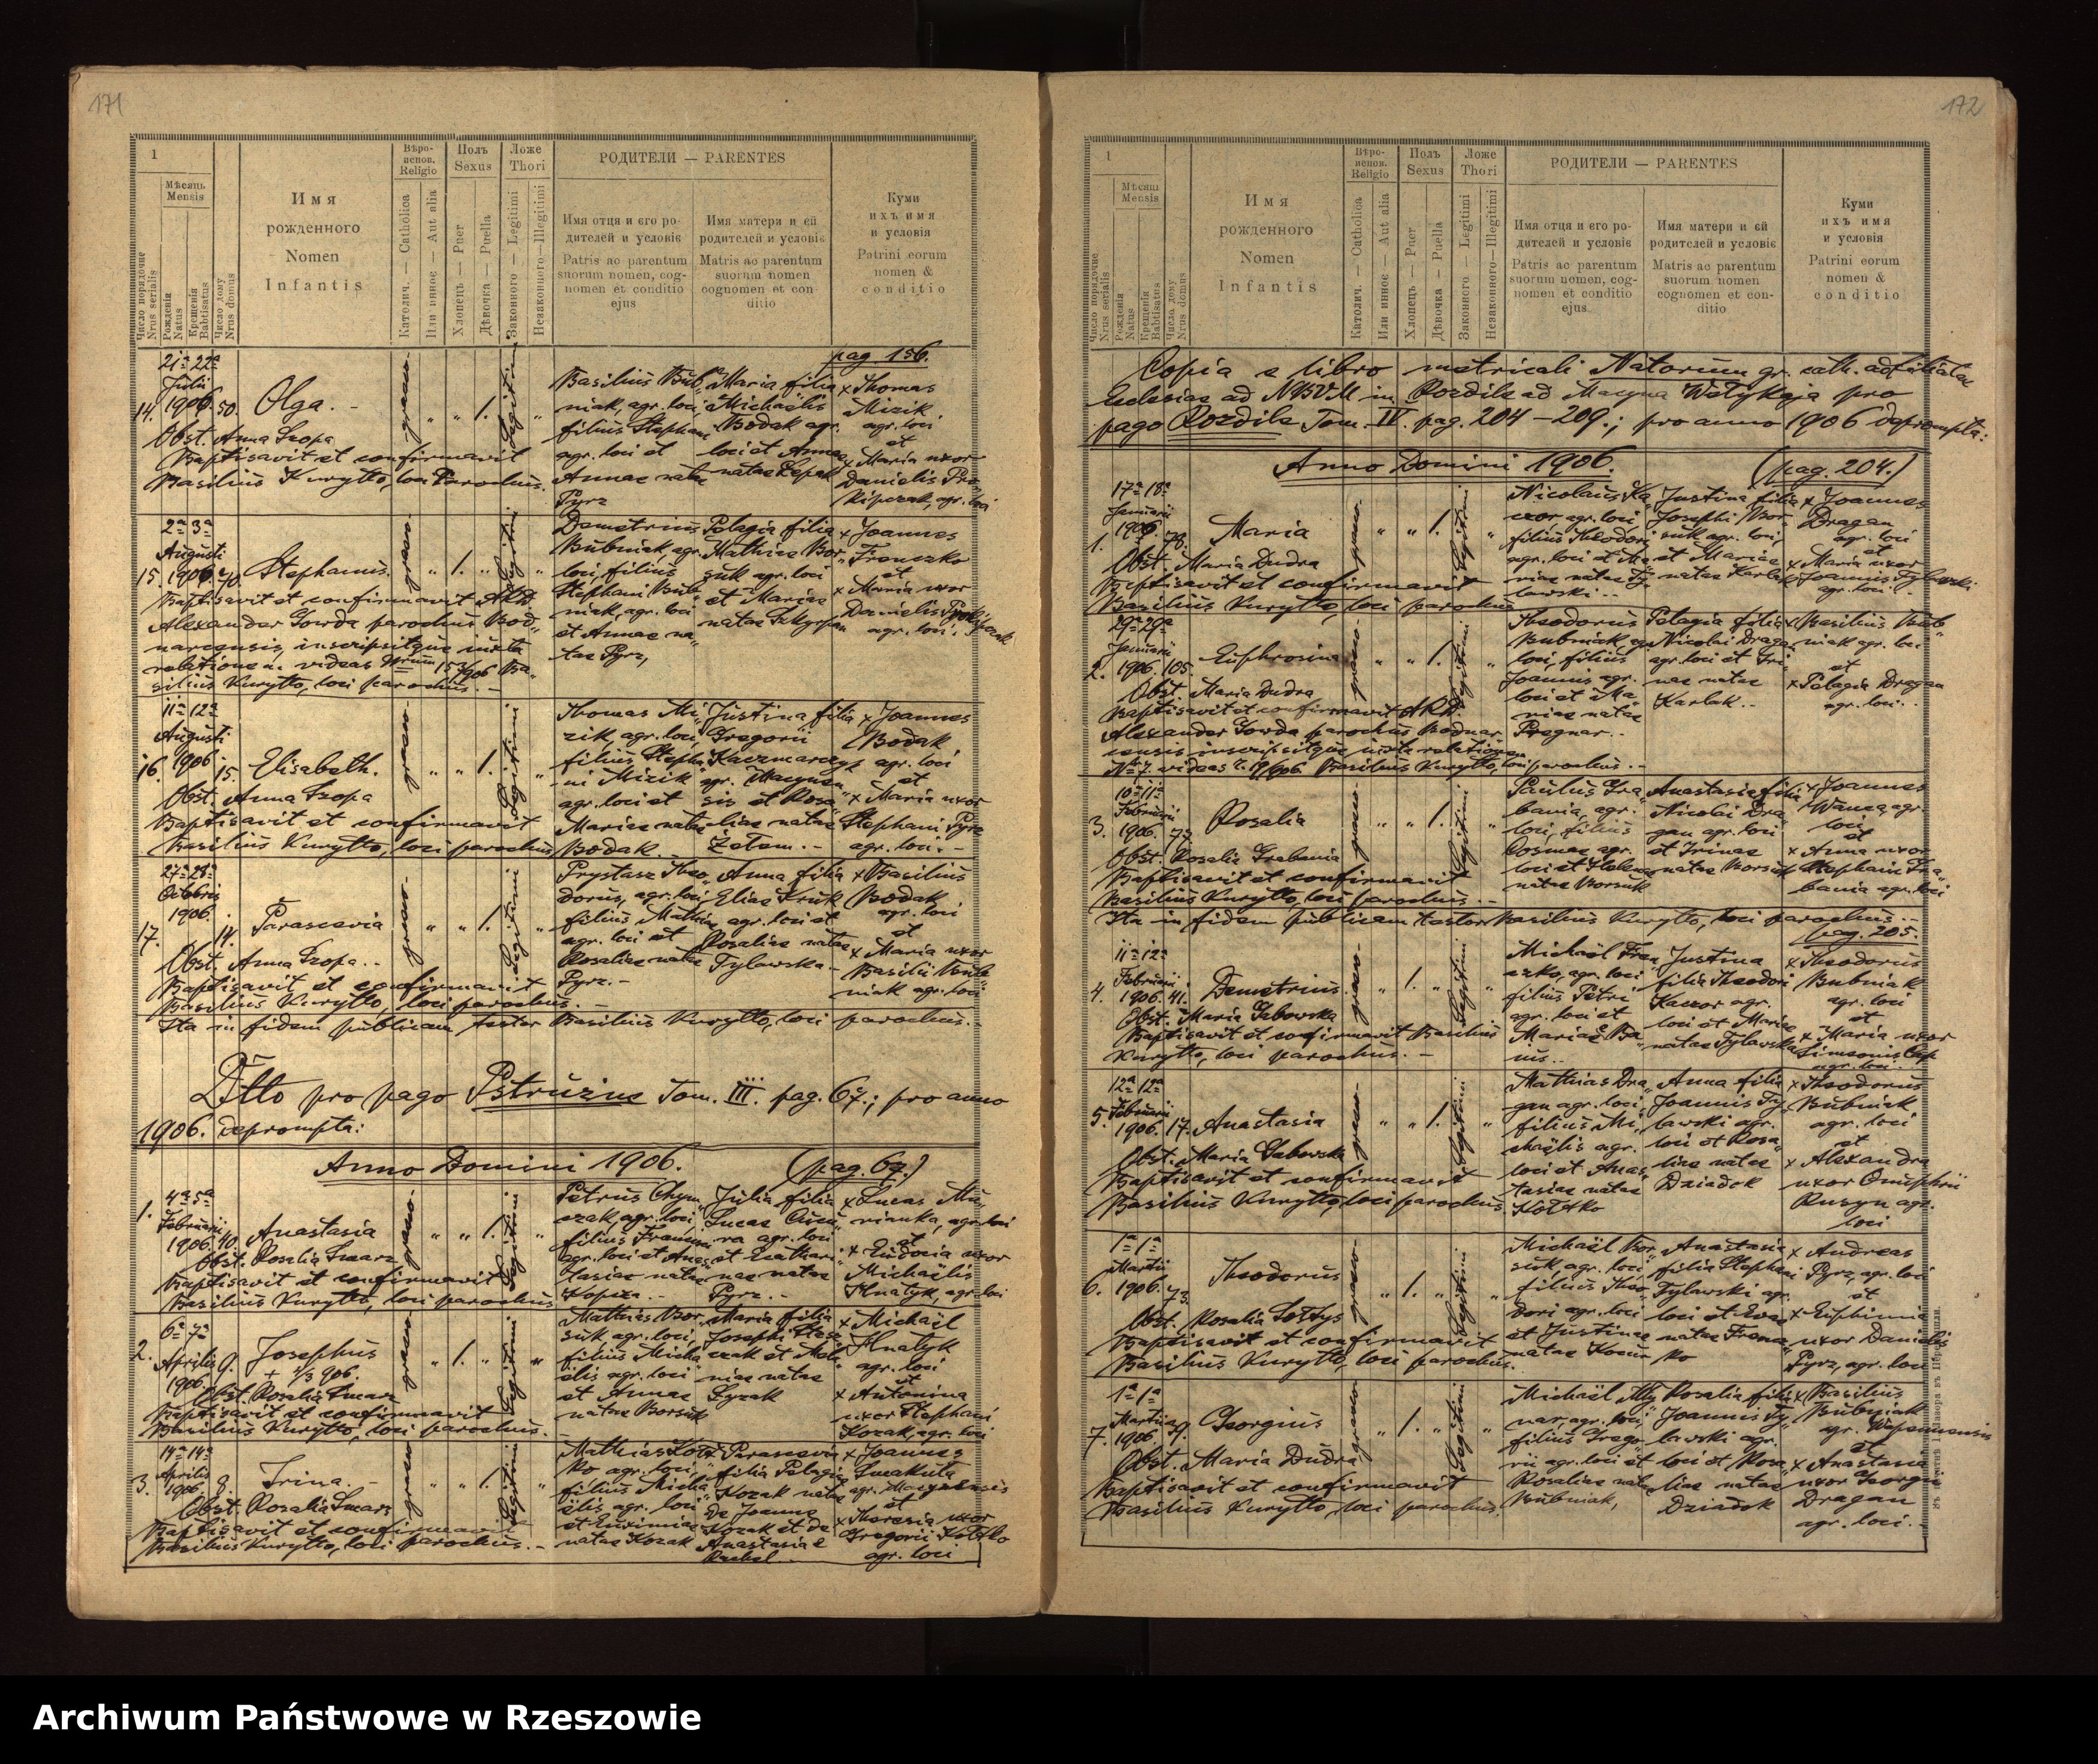 171
1
Мѣсяць
Mensis
Число порядочне
Nrus serialis
Рожденія
Natus
Крещенія
Babtisatus
Число дому
Nrus domus
Имя
рожденного
Nomen
Infantis
Вѣро-
испов.
Religio
Католич. — Catholica
Или инное — Aut alia
Полъ
Sexus
Хлопець — Puer
Дѣвочка — Puella
Ложе
Thori
Законного — Legitimi
Незаконного — Illegitimi
РОДИТЕЛИ — PARENTES
Имя отця и єго ро-
дителей и условіє
Patris ac parentum
suorum nomen, cog-
nomen et conditio
ejus
Имя матери и єй
родителей и условіє
Matris ac parentum
suorum nomen
cognomen et con
ditio
Куми
ихъ имя
и условія
Patrini eorum
nomen &
conditio
pag 156.
21ª 22ª
Julii
14. 1906. 50. Olga. -
graeco-
" " 1. Legitimi "
Obst. Anna Szopa
Baptisavit et confirmavit
Basilius Kuryłło, loci Parochus.
Basilius Bub„
niak, agr. loci
filius Stephani
agr. loci et
Annae natae
Pyrz
Maria filia
Michaëlis
Bodak agr.
loci et Annae
natae Lepak
x Thomas
Mizik.
agr. loci
et
x Maria uxor
Danielis Pro„
kipczak, agr. loci
2ª 3ª
Augusti
15. 1906. 40. Stephanus.
graeco-
" 1. " Legitimi "
Baptisavit et confirmavit ARD
Alexander Gowda parochus Bod„
narcensis, inscripsitque iuxta
relationem. videas Nrum 157/906 Ba„
silius Kuryłło, loci parochus. -
Demetrius
Bubniak, agr.
loci, filius
Stephani Bub„
niak, agr. loci
et Annae na„
tae Pyrz,
Pelagia filia
Mathiae Bor„
suk agr. loci
et Mariae
natae Skyrpan
x Joannes
Frenczko
et
x Maria uxor
Danielis Prokipczak
agr. loci.
11ª 12ª
Augusti
16. 1906 15. Elisabeth.
graeco-
" " 1. Legitimi "
Obst. Anna Szopa
Baptisavit et confirmavit
Basilius Kuryłło, loci parochus
Thomas Mi„
zik, agr. loci,
filius Stepha„
ni Mizik
agr. loci et
Mariae natae
Bodak. -
Justina filia
Gregorii
Kaczmarczyk
agr. Macyna„
sis et Rosa„
liae natae
Żetem. -
x Joannes
Bodak
agr. loci
et
x Maria uxor
Stephani Pyrz
agr. loci. -
27ª 28ª
Octobris
17. 1906. 14. Parascevia
graeco-
" " 1. Legitimi "
Obst. Anna Szopa. -
Baptisavit et confirmavit
Basilius Kuryłło, loci parochus. -
Prystasz Theo„
dorus, agr. loci,
filius Mathiae
agr. loci et
Rosaliae natae
Pyrz. -
Anna filia
Eliae Kruk
agr. loci et
Rosaliae natae
Tylawska -
x Basilius
Bodak
agr. loci
et
x Maria uxor
Basilii Bub„
niak agr. loci
Ita in fidem publicam testor Basilius Kuryłło, loci parochus. -
Dtto pro pago Pstrużne Tom. III. pag. 67.; pro anno
1906. deprompta:
Anno Domini 1906. (pag. 67.)
4ª 5ª
Februarii
1. 1906. 40. Anastasia
graeco-
" " 1. Legitimi "
Obst. Rosalia Smarz
Baptisavit et confirmavit
Basilius Kuryłło, loci parochus
Petrus Chym„
czak, agr. loci,
agr. loci et Anas„
tasiae natae
Kopcza. -
Julia filia
Lucae
agr. loci
et Cathari„
nae natae
Pyrz. -
x Lucas Mu„
nianka, agr. loci
et
x Eudocia uxor
Michaëlis
Hnatyk, agr. loci
6ª 7ª
2. Aprilis 9. Josephus
1906. + 7/3 906.
graeco-
" 1. " Legitimi "
Obst. Rosalia Smarz
Baptisavit et confirmavit
Basilius Kuryłło, loci parochus. -
Mathias Bor„
suk, agr. loci,
filius Micha„
elis agr. loci
et Annae
natae Borsuk
Maria filia
Josephi
niae natae
x Michail
Hnatyk
agr. loci
et
x Antonina
uxor Stephani
Kozak, agr. loci
14ª 14ª
Aprilis
3. 1906. 8. Irina. -
graeco-
" " 1. Legitimi "
Obst. Rosalia Smarz
Baptisavit et confirmavit
Basilius Kuryłło, loci parochus. -
Mathias Kot„
ko agr. loci,
filius Micha„
ëlis agr. loci
et Euximiae
natae Kozak
Parascevia
filia Pelagiae
Kozak natae
de Joanne
Kozak et de
Anastasia
x Joannes
Smakuła
agr. Macynensis
et
x Theresia uxor
Gregorii Kotzko
agr. loci
172
1
Мѣсяць
Mensis
Число порядочне
Nrus serialis
Рожденія
Natus
Крещенія
Babtisatus
Число дому
Nrus domus
Имя
рожденного
Nomen
Infantis
Вѣро-
испов.
Religio
Католич. — Catholica
Или инное — Aut alia
Полъ
Sexus
Хлопець — Puer
Дѣвочка — Puella
Ложе
Thori
Законного — Legitimi
Незаконного — Illegitimi
РОДИТЕЛИ — PARENTES
Имя отця и єго ро-
дителей и условіє
Patris ac parentum
suorum nomen, cog-
nomen et conditio
ejus
Имя матери и єй
родителей и условіє
Matris ac parentum
suorum nomen
cognomen et con-
ditio
Куми
ихъ имя
и условія
Patrini eorum
nomen &
conditio
Copia e libro metricali Natorum gr. cath. ad filialem
Eclesiae ad NBVM in Rozdile ad Macyna Wełykaja pro
pago Rozdile Tom. IV. pag. 204-209.; pro anno 1906 deprompta:
Anno Domini 1906. (pag. 204.)
17ª 18ª
Januarii
1. 1906. 78. Maria
graeco-
" " 1. Legitimi "
Obst. Maria Dudra
Baptisavit et confirmavit
Basilius Kuryłło, loci parochus
Nicolaus Ka„
czor agr. loci,
filius Theodori
agr. loci et Ma„
riae natae Ty„
lawski. -
Justina filia
Josephi Bor„
suk agr. loci,
et Mariae
natae Karlak
x Joannes
Dragan
agr. loci
et
x Maria uxor
Joannis Tylawski
agr. loci. -
29ª 29ª
Januarii
2. 1906. 105. Euphrosina
graeco-
" " 1. Legitimi "
Obst. Maria Dudra
Baptisavit et confirmavit ARD.
Alexander Gowda parochus Bodnar„
censis inscripsitque iuxta relationem
Nr 7. videas Basilius Kuryłło, loci parochus. -
Theodorus
Bubniak agr.
loci, filius
Joannis agr.
loci et Ma„
riae natae
Pregnar. -
Pelagia filia
Nicolai Dragan
agr. loci et Iri„
nae natae
Karlak. -
x Basilius Bub„
niak agr. loci
et
x Pelagia Dragan
agr. loci. -
10ª 11ª
Februarii
3. 1906. 73. Rosalia
graeco-
" " 1. Legitimi "
Obst. Rosalia Grabania
Baptisavit et confirmavit
Basilius Kuryłło, loci parochus. -
Paulus Gra„
bania, agr.
loci, filius
Cosmae agr.
loci et Helenae
natae Borsuk
Anastasia filia
Nicolai Dra„
gan agr. loci
et Irinae
natae Borsuk
x Joannes
Wanca, agr.
loci
et
x Anna uxor
Stephani Gra„
bania agr. loci
Ita in fidem publicam testor Basilius Kuryłło, loci parochus. -
pag. 205.
11ª 12ª
Februarii
4. 1906. 41. Demetrius
graeco-
" 1. " Legitimi "
Obst. Maria Gabowska
Baptisavit et confirmavit Basilius
Kuryłło, loci parochus. -
Michaël Fren„
czko, agr. loci
filius Petri
agr. loci et
Mariae Ba„
nis. -
Justina
filia Theodori
Kaczor agr.
loci et Mariae
natae Tylawska
x Theodorus
Bubniak
agr. loci
et
x Maria uxor
Simeonis
agr. loci. -
12ª 12ª
Februarii
5. 1906. 17. Anastasia
graeco-
" " 1. Legitimi "
Obst. Maria Gabowska
Baptisavit et confirmavit
Basilius Kuryłło, loci parochus.
Mathias Dra„
gan agr. loci,
filius Mi„
chaëlis agr.
loci et Anas„
tasiae natae
Kotzko
Anna filia
Joannis Ty„
lawski agr.
loci et Rosa„
liae natae
Dziadok
x Theodorus
Bubniak
agr. loci
et
x Alexandra
uxor Onuphrii
Rusyn agr.
loci
1ª 1ª
Martii
6. 1906. 73. Theodorus
graeco-
" 1. " Legitimi "
Obst. Rosalia Sołtys
Baptisavit et confirmavit
Basilius Kuryłło, loci parochus.
Michaël Bor„
suk, agr. loci,
filius Theo„
dori agr. loci
et Justinae
natae Kocur
Anastasia
filia Stephani
Tylawski agr.
loci et Evae
natae Frencz„
ko
x Andreas
Pyrz, agr. loci
et
x Euphimia
uxor Danielis
Pyrz, agr. loci
1ª 1ª
Martii
7. 1906 39. Georgius
graeco-
" 1. " Legitimi "
Obst. Maria Dudra
Baptisavit et confirmavit
Basilius Kuryłło, loci parochus.
Michaël My„
nar, agr. loci,
filius Grego„
rii agr. loci et
Rosaliae natae
Bubniak,
Rosalia filia
Joannis Ty„
lawski agr.
loci et Rosa„
liae natae
Dziadok
x Basilius
Bubniak
agr. Wapennensis
et
x Anastasia
uxor Georgii
Dragan
agr. loci. -
Archiwum Państwowe w Rzeszowie